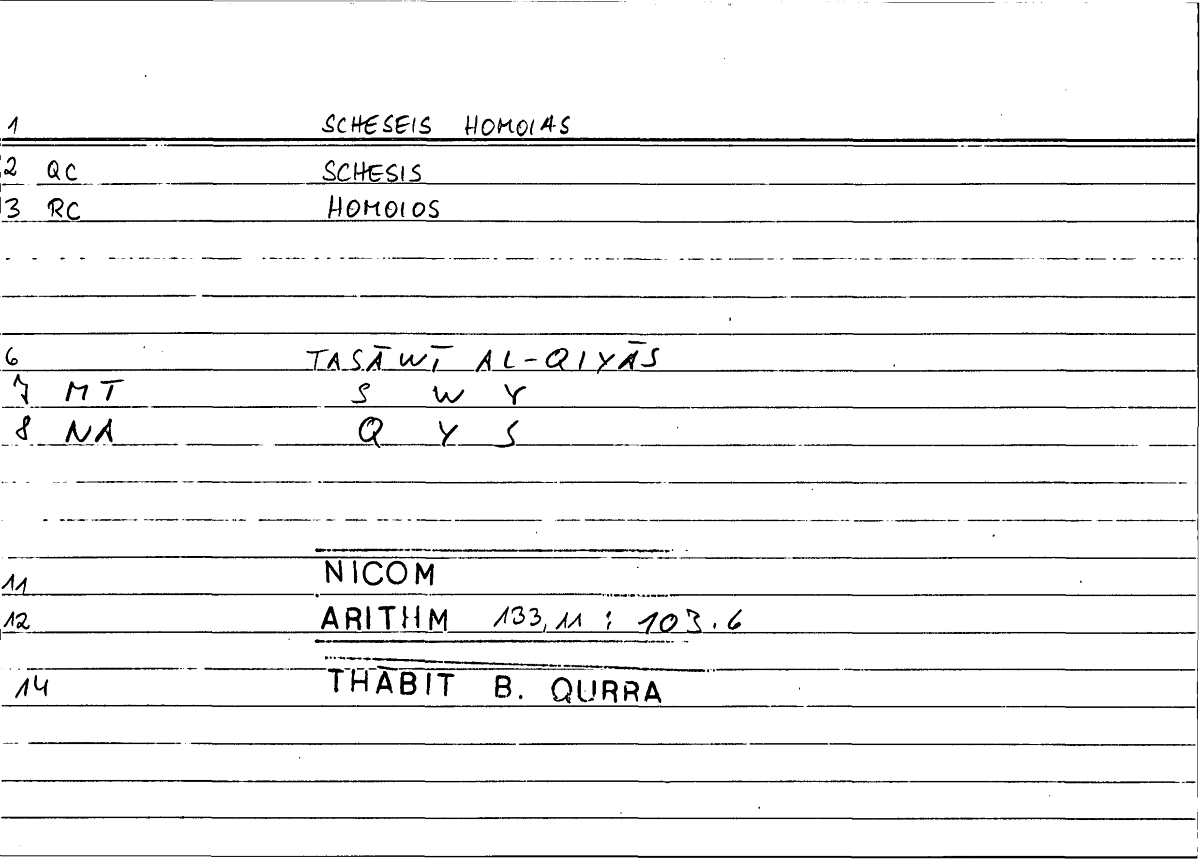 1 SCHESEIS HOMOIAS
2 QC SCHESIS
3 RC HOMOIOS
6 TASĀWĪ AL-QIYĀS
7 MT S W Y
8 NA Q Y S
11 NICOM
12 ARITHM 133,11 ; 103.6
14 THĀBIT B. QURRA